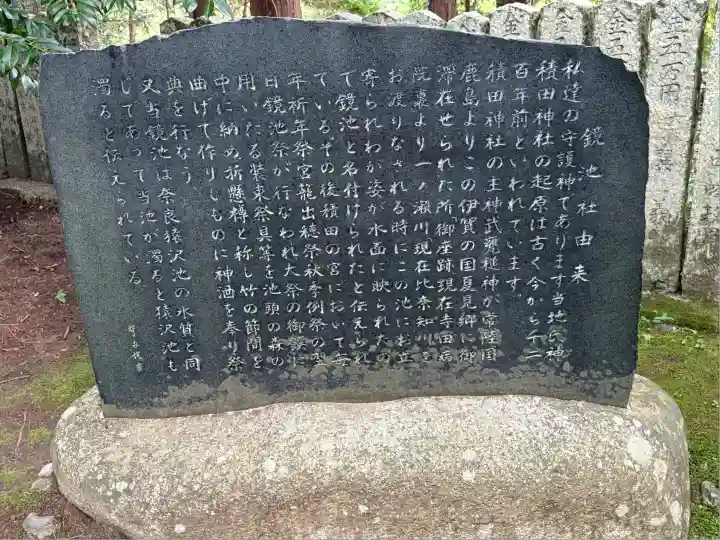 鏡池社由来
私達の守護神であります当地氏神
積田神社の起原は古く今から千二
百年前といわれています。
積田神社の主神武甕槌神が常陸国
鹿島よりこの伊賀の国夏見郷に御
滞在せられた所「御座跡現在寺田病
院裏より一ノ瀬川現在比奈知川を
お渡りなされる時にこの池にお立
寄られわが姿が水面に映られたの
で鏡池と名付けられたと伝えられ
ているその後積田の宮において毎
年祈年祭宮龍出穂祭秋季例祭の翌
日鏡池祭が行なわれ大祭の御祭に
用いたる装束祭具等を池頭の森の
中に納め折懸樽と称し竹の節間を
曲げて作りしものに神酒を奉り祭
典を行なう
又当鏡池は奈良猿沢池の水質と同
じであって当池が濁ると猿沢池も
濁ると伝えられている
金五万円